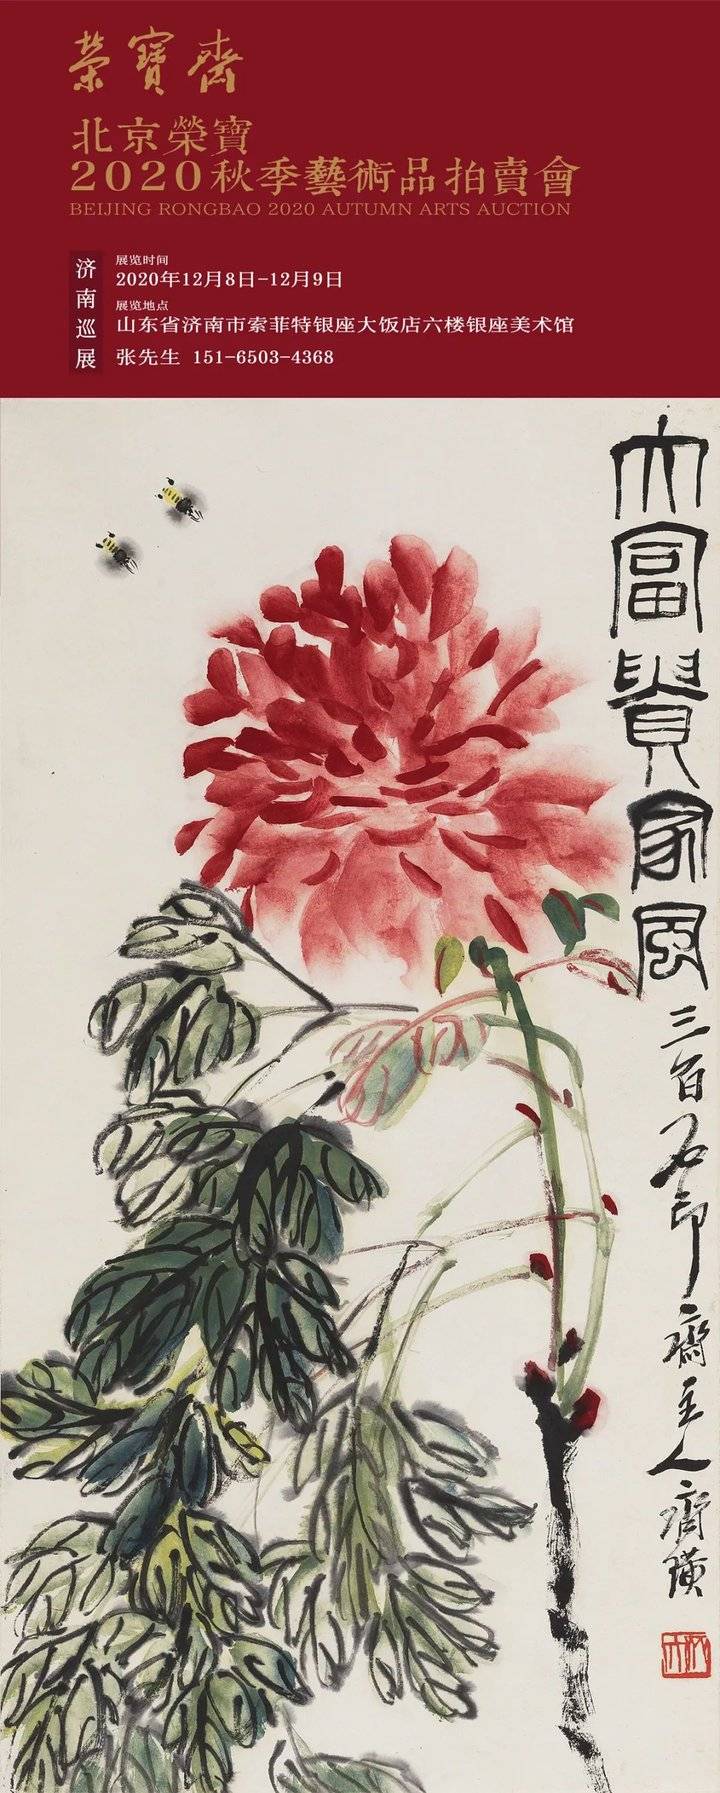 榮寶齋
北京榮寶
2020秋季藝術品拍賣會
BEIJING RONGBAO 2020 AUTUMN ARTS AUCTION
济南巡展
展览时间
2020年12月8日-12月9日
展览地点
山东省济南市索菲特银座大饭店六楼银座美术馆
张先生 151-6503-4368
大富貴家風
三百石印齋主人齊璜